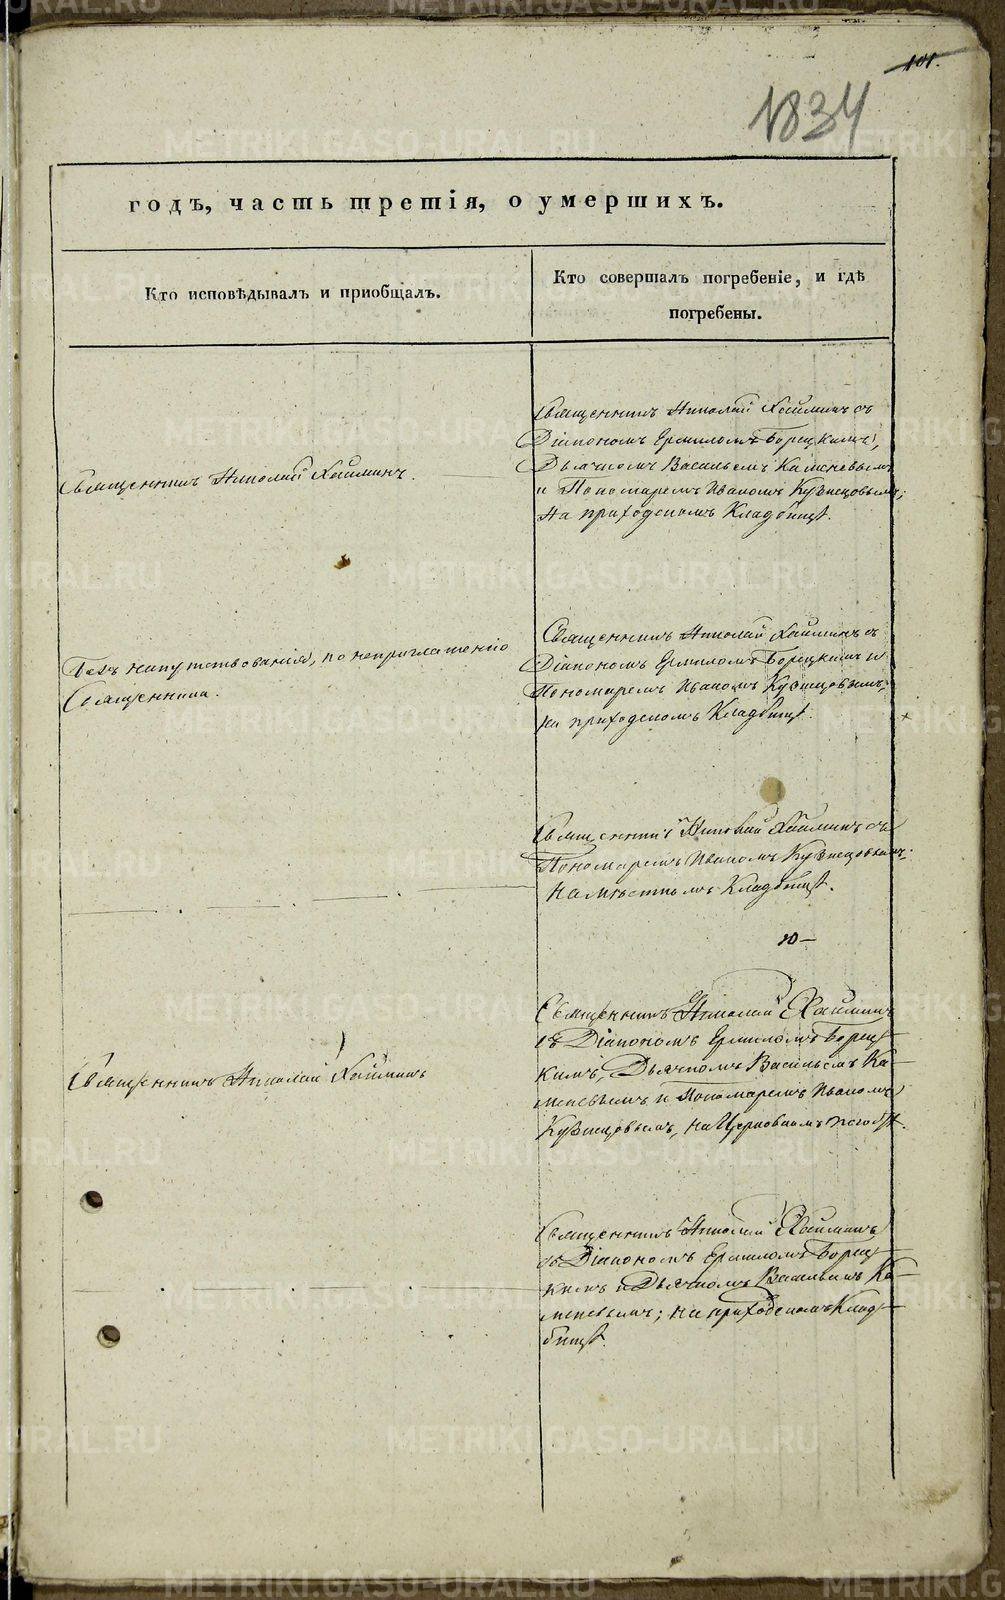 101.
1834
годъ, часть третія, о умершихъ.
Кто исповѣдывалъ и приобщалъ.
Кто совершалъ погребеніе, и гдѣ
погребены.
Священникъ Николай Хайминъ.
Священникъ Николай Хайминъ съ
Діакономъ Ермиломъ Борецкимъ,
Дьячкомъ Васильемъ Каменевымъ
и Пономаремъ Иваномъ Кузнецовымъ;
на приходскомъ Кладбищѣ.
Безъ напутствованія, по неприглашенію
Священника.
Священникъ Николай Хайминъ съ
Діакономъ Ермиломъ Борецкимъ и
Пономаремъ Иваномъ Кузнецовымъ;
на приходскомъ Кладбищѣ.
Священникъ Николай Хайминъ съ
Пономаремъ Иваномъ Кузнецовымъ;
на мѣстномъ Кладбищѣ.
10—
Священникъ Николай Хайминъ
Священникъ Николай Хайминъ
съ Діакономъ Ермиломъ Борец-
кимъ, Дьячкомъ Васильемъ Ка-
меневымъ и Пономаремъ Иваномъ
Кузнецовымъ, на Церковномъ погостѣ.
Священникъ Николай Хайминъ
съ Діакономъ Ермиломъ Борец-
кимъ и Дьячкомъ Васильемъ Ка-
меневымъ; на приходскомъ Клад-
бищѣ.
METRIKI.GASO-URAL.RU